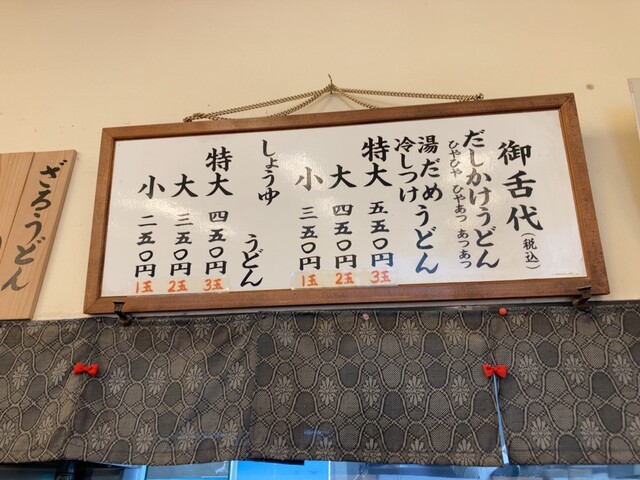 御舌代(税込)
だしかけうどん
ひやひや ひやあつ あつあつ
湯だめうどん
冷しつけ
特大 五五〇円 3玉
大 四五〇円 2玉
小 三五〇円 1玉
しょうゆ うどん
特大 四五〇円 3玉
大 三五〇円 2玉
小 二五〇円 1玉
ざるうどん